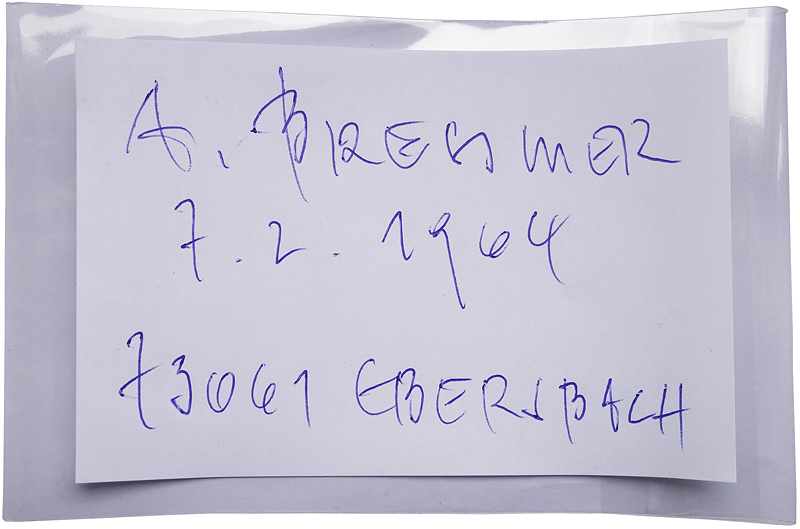 A. BREHMER
7.2.1964
73061 EBERSBACH